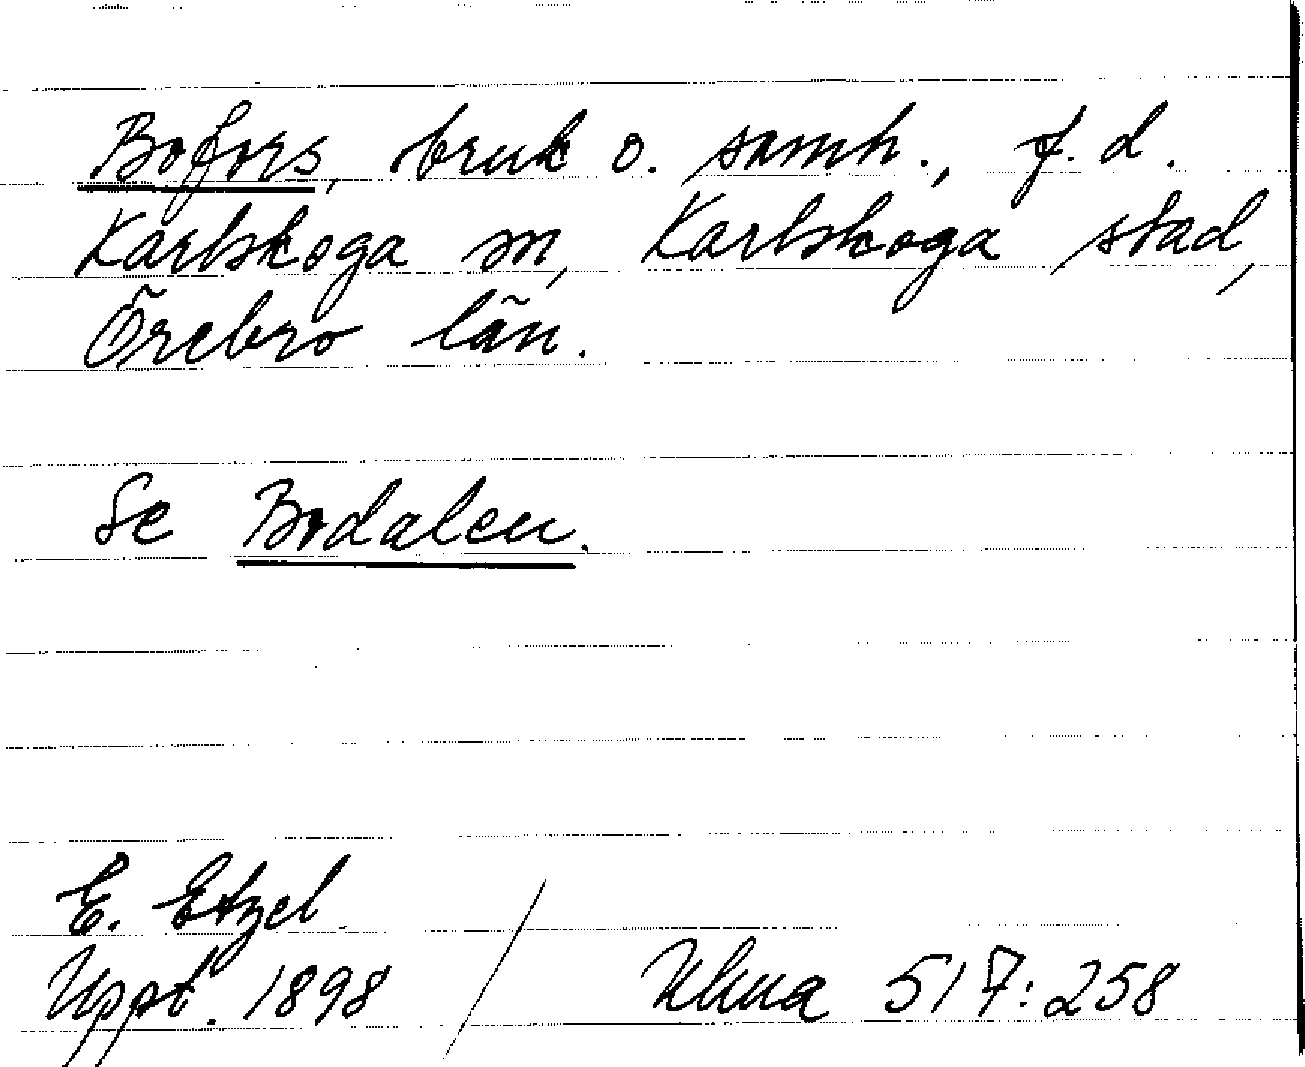 Bofors, bruk o. samh., f.d.
Karlskoga sn, Karlskoga stad,
Örebro län.
Se Bodalen.
E. Etzel
Uppt. 1898 / Uluna 517:258